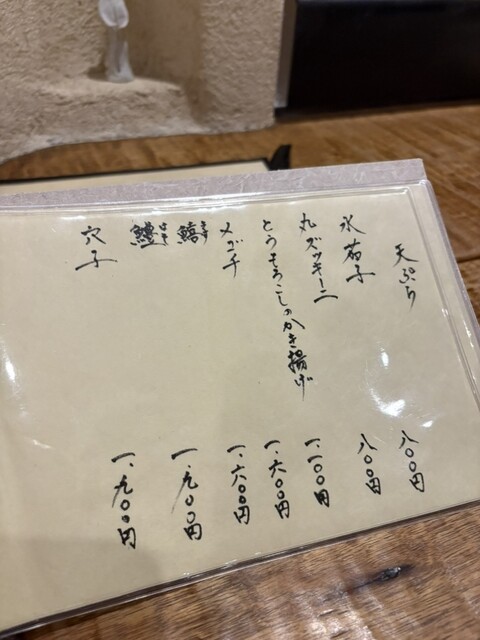 天ぷら
水茄子 八〇〇円
丸ズッキーニ 八〇〇円
とうもろこしのかき揚げ 一、一〇〇円
メゴチ 一、六〇〇円
鱚 きす 一、六〇〇円
鱧 はも 一、九〇〇円
穴子 一、九〇〇円